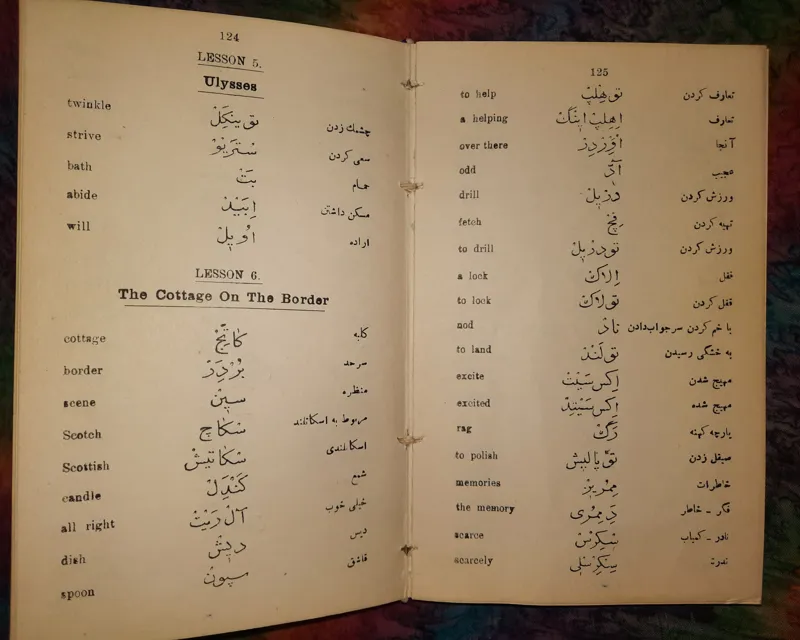 124
LESSON 5.
Ulysses
twinkle تو ینکِلْ چشمك زدن
strive سْتْرَیوْ سعی کردن
bath بَتْ حمام
abide اِبَیْدْ مسکن داشتن
will اُویِلْ اراده
LESSON 6.
The Cottage On The Border
cottage کاتِجْ کلبه
border بُرْدِرْ سرحد
scene سیِنْ منظره
Scotch سْکاچ مربوط به اسکاتلند
Scottish سْکاتیشْ اسکاتلندی
candle کَنْدِلْ شمع
all right آلْ رَیْتْ خیلی خوب
dish دیِشْ دیس
spoon سپونْ قاشق
125
to help تو هِلْپْ تعارف کردن
a helping اِ هِلْپْ اینْگْ تعارف
over there اُوْرْدِزْ آنجا
odd آدّ عجیب
drill دْریِلْ ورزش کردن
fetch فِچْ تهیه کردن
to drill تو دْریِلْ ورزش کردن
a lock اِ لاکْ قفل
to lock تو لاکْ قفل کردن
nod نادْ با خم کردن سر جواب دادن
to land تو لَنْدْ به خشگی رسیدن
excite اِکْسَیْتْ مهیج شدن
excited اِکْسَیْتِدْ مهیج شده
rag رَگْ پارچه کهنه
to polish تو پالیشْ صیقل زدن
memories مِمُریزْ خاطرات
the memory دِ مِمُری فکر - خاطر
scarce سْکِرْسْ نادر - کمیاب
scarcely سْکِرْسْلی ندرة